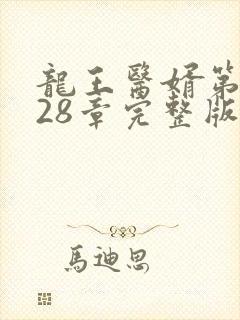 龍王醫婿第
28章完整版
馬迪恩